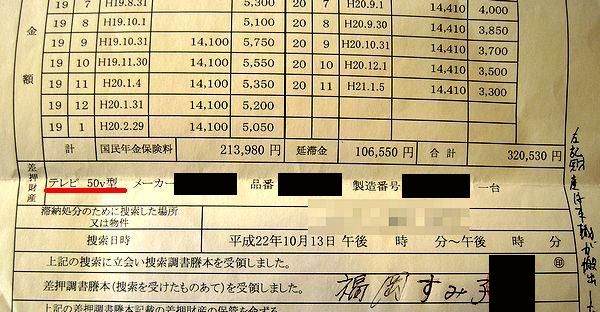 金額
19 7 H19.8.31 5,300 20 7 H20.9.1 14,410 4,000
19 8 H19.10.1 5,100 20 8 H20.9.30 14,410 3,850
19 9 H19.10.31 14,100 5,750 20 9 H20.10.31 14,410 3,700
19 10 H19.11.30 14,100 5,550 20 10 H20.12.1 14,410 3,500
19 11 H20.1.4 14,100 5,350 20 11 H21.1.5 14,410 3,300
19 12 H20.1.31 14,100 5,200
19 1 H20.2.29 14,100 5,050
計 国民年金保険料 213,980 円 延滞金 106,550 円 合計 320,530 円
差押財産
テレビ 50v型 メーカー 品番 製造番号 一台
滞納処分のために捜索した場所
又は物件
捜索日時 平成22年10月13日 午後 時 分〜午後 時 分
上記の捜索に立会い捜索調書謄本を受領しました。 印
差押調書謄本(捜索を受けたものあて)を受領しました。 福岡すみ子
上記の差押調書謄本記載の差押財産の保管を命ずる
左記財産は
搬出した